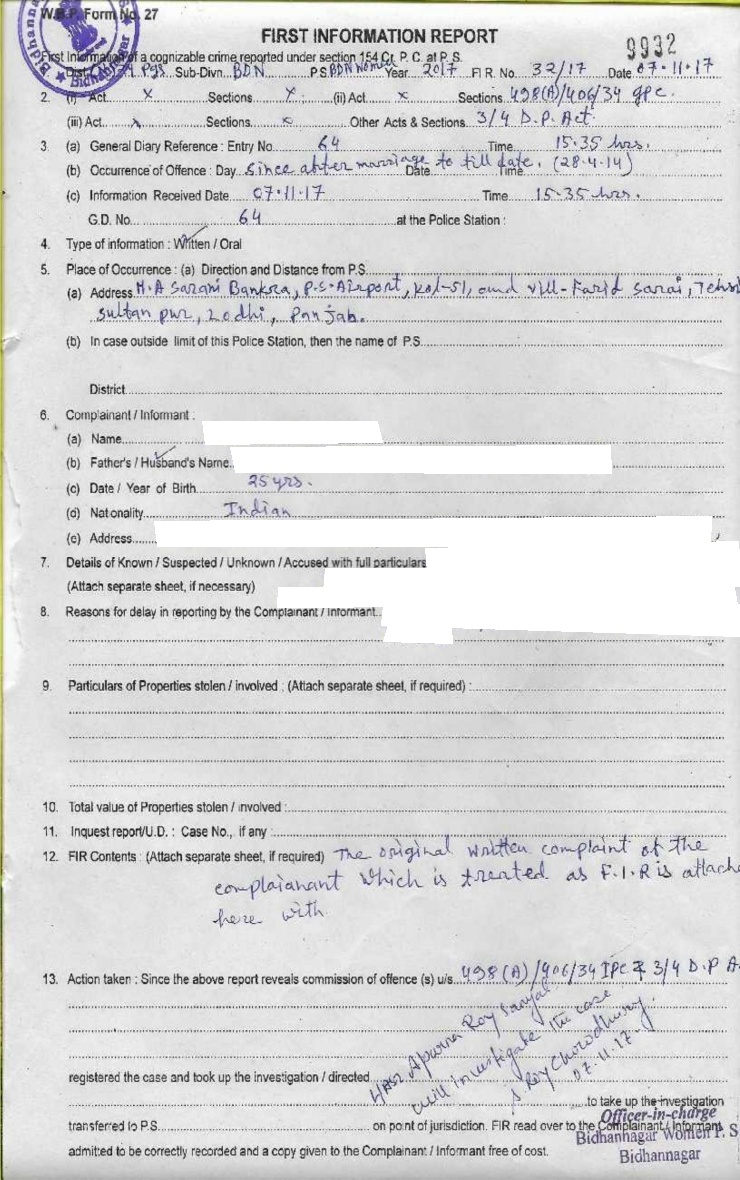 Bidhannagar
W.B.P. Form No. 27
FIRST INFORMATION REPORT
9932
First Information of a cognizable crime reported under section 154 Cr. P. C. at P. S.
Dist. Pgs Sub-Divn. BDN P.S. BDN Women Year 2017 FIR. No. 32/17 Date 07.11.17
2. (i) Act x Sections x (ii) Act x Sections 498(A)/406/34 IPC.
(iii) Act x Sections x Other Acts & Sections 3/4 D.P. Act.
3. (a) General Diary Reference : Entry No. 64 Time 15.35 hrs.
(b) Occurrence of Offence : Day since abter marriage to till date. (28.4.14) Date Time
(c) Information Received Date 07.11.17 Time 15.35 hrs.
G.D. No. 64 at the Police Station :
4. Type of information : Written / Oral
5. Place of Occurrence : (a) Direction and Distance from P.S.
(a) Address M.A Sarani Bankra, P.S-Airport, Kol-51, and vill-Farid Sarai, Tehsi
Sultan pur, Lodhi, Panjab.
(b) In case outside limit of this Police Station, then the name of P.S.
District
6. Complainant / Informant :
(a) Name
(b) Father's / Husband's Name
(c) Date / Year of Birth 25 yrs.
(d) Nationality Indian
(e) Address
7. Details of Known / Suspected / Unknown / Accused with full particulars
(Attach separate sheet, if necessary)
8. Reasons for delay in reporting by the Complainant / Informant
9. Particulars of Properties stolen / involved : (Attach separate sheet, if required) :
10. Total value of Properties stolen / involved :
11. Inquest report/U.D. : Case No., if any :
12. FIR Contents : (Attach separate sheet, if required) The original written complaint of the
complaianant which is treated as F.I.R is attache
here with
13. Action taken : Since the above report reveals commission of offence (s) u/s 498(A)/406/34 IPC & 3/4 D.P A
Apurna Roy Sanyal
will investigate the case
S. Roy Chowdhury.
07.11.17
registered the case and took up the investigation / directed
to take up the investigation
Officer-in-charge
transferred to P.S. on point of jurisdiction. FIR read over to the Complainant / Informant
Bidhannagar Women P. S
admitted to be correctly recorded and a copy given to the Complainant / Informant free of cost.
Bidhannagar